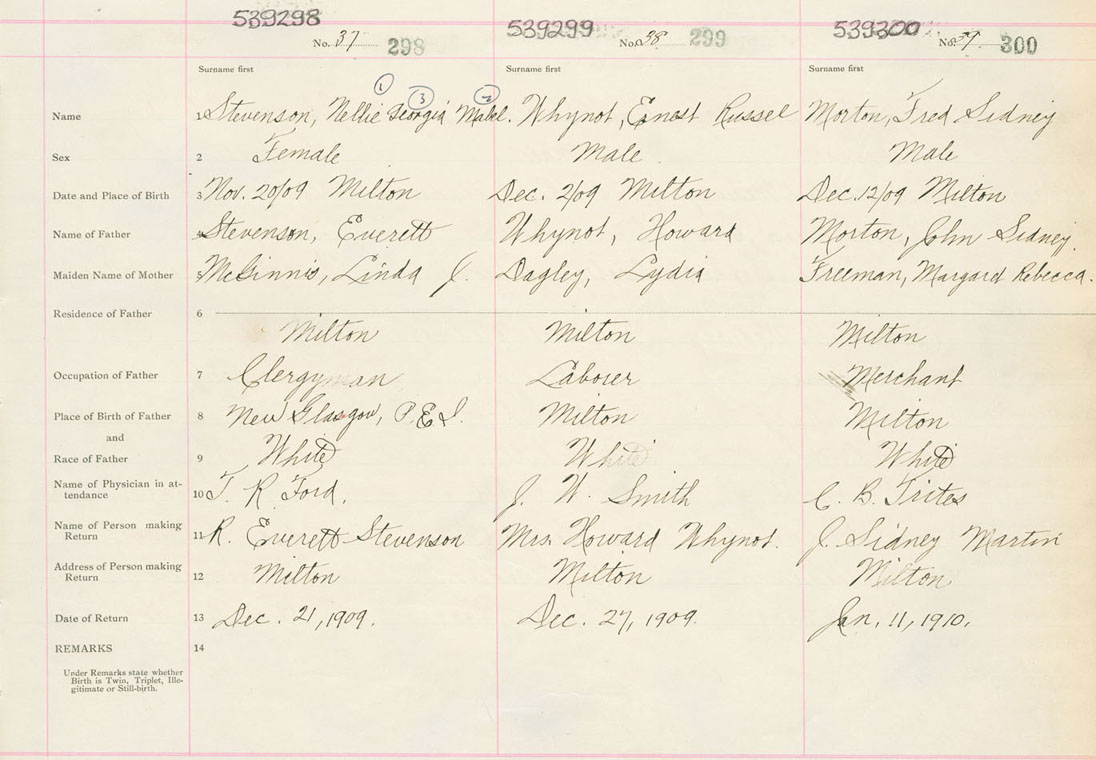 539298 539299 539300
No. 37 298 No. 38 299 No. 39 300
Surname first Surname first Surname first
① ③ ②
Name 1 Stevenson, Nellie Georgia Mabel. Whynot, Ernest Russel Morton, Fred Sidney
Sex 2 Female Male. Male
Date and Place of Birth 3 Nov. 20/09 Milton Dec. 2/09 Milton Dec. 12/09 Milton
Name of Father 4 Stevenson, Everett Whynot, Howard Morton, John Sidney.
Maiden Name of Mother 5 McGinnis, Linda J. Dagley, Lydia Freeman, Margaret Rebecca.
Residence of Father 6
Milton Milton Milton
Occupation of Father 7 Clergyman Laborer Merchant
Place of Birth of Father 8 New Glasgow, P.E.I. Milton Milton
and
Race of Father 9 White White White
Name of Physician in at-
tendance 10 J. R. Ford. J. W. Smith C. B. Trites
Name of Person making
Return 11 R. Everett Stevenson Mrs. Howard Whynot. J. Sidney Martin
Address of Person making
Return 12 Milton Milton Milton
Date of Return 13 Dec. 21, 1909. Dec. 27, 1909. Jan. 11, 1910.
REMARKS 14
Under Remarks state whether
Birth is Twin, Triplet, Ille-
gitimate or Still-birth.